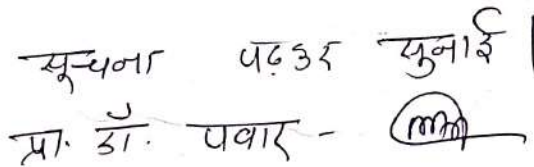 सूचना पढ़कर सुनाई |
प्रा. डॉ. पवार -